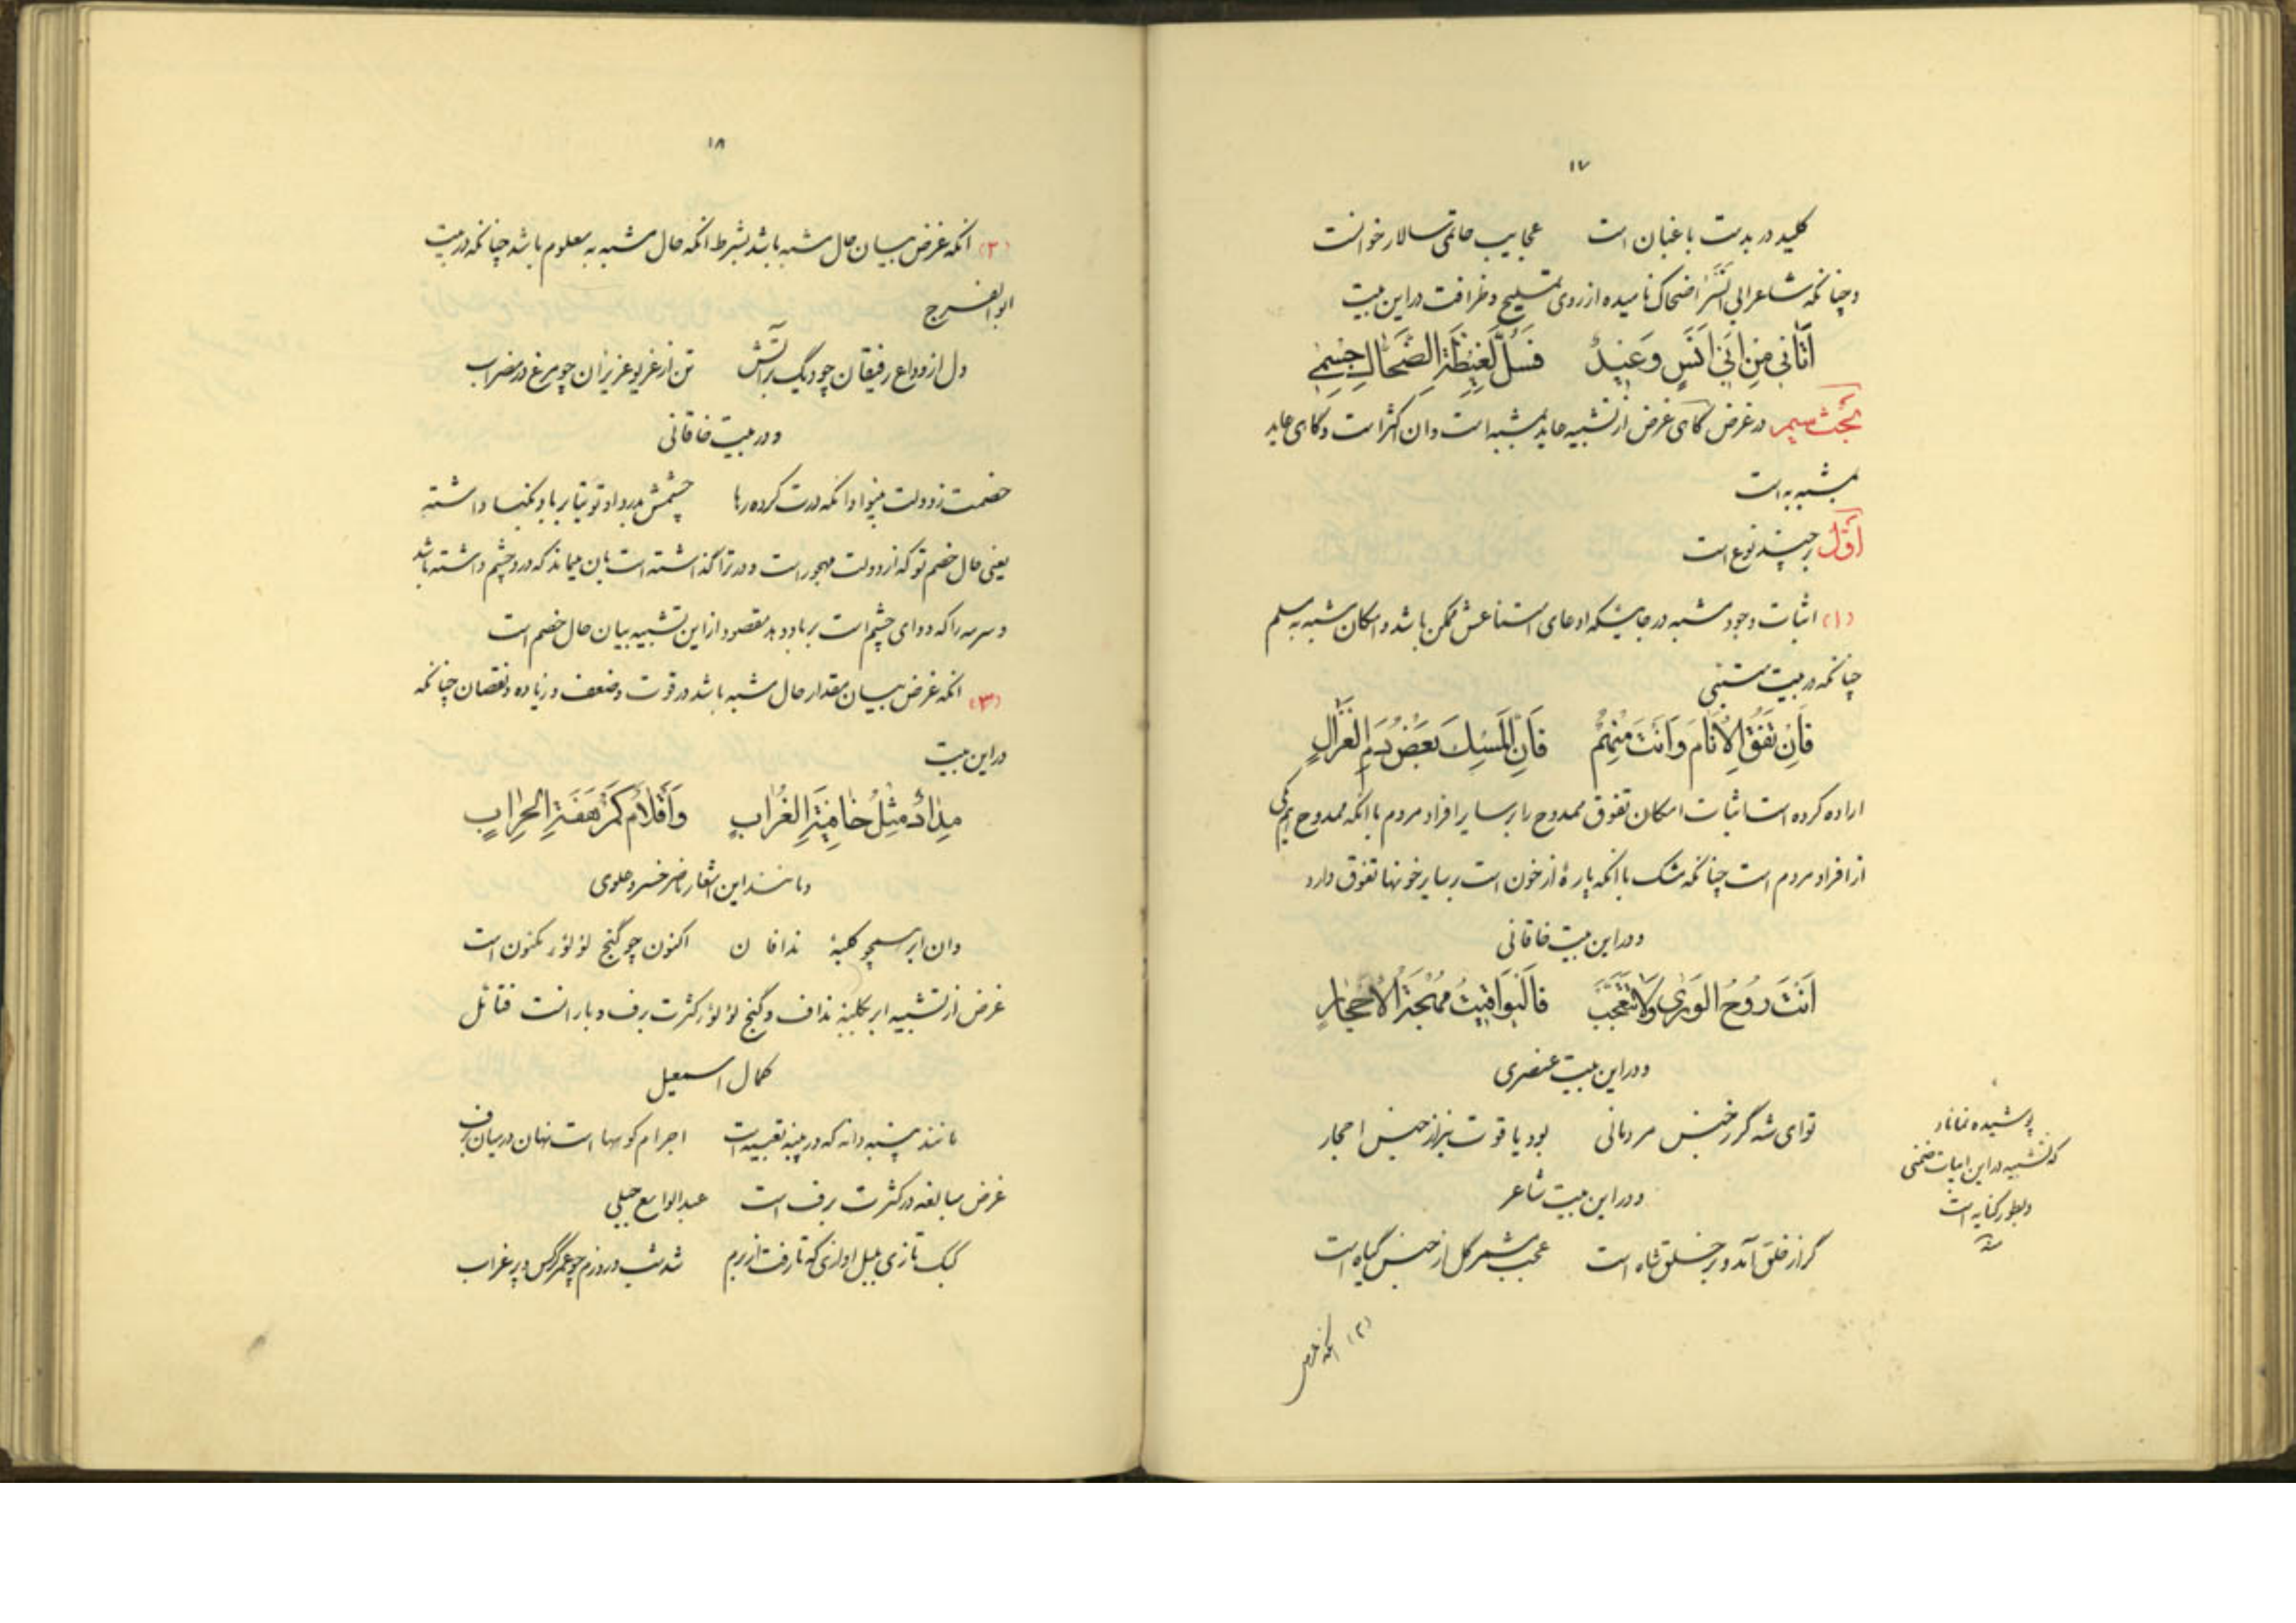 ۱۷
کلید در بدست باغبان است عجایب حاتمی سالار خوانست
و چنانکه شاعر ابی انس را ضحاک نامیده از روی تملیح و ظرافت در این بیت
اَتَانِی مِن اَبِی اَنَسٍ وَعِیدٌ فَسُلَّ لِغَیظَةِ الضَّحَّاكِ جِسمِی
بحث سیم در غرض گاهی غرض از تشبیه عاید بمشبه است و ان اکثر است و گاهی عاید
بمشبه به است
اوّل بر چند نوع است
(۱) اثبات وجود مشبه در جائیکه ادعای امتناعش ممکن باشد و امکان مشبه به مسلم
چنانکه در بیت متنبی
فَاِن تَفُقِ الاَنَامَ وَاَنتَ مِنهُم فَاِنَّ المِسكَ بَعضُ دَمِ الغَزَالِ
اراده کرده است اثبات امکان تفوق ممدوح را بر سایر افراد مردم با انکه ممدوح هم یکی
از افراد مردم است چنانکه مشک با انکه پارهٔ از خون است بر سایر خونها تفوق دارد
و در این بیت خاقانی
اَنتَ رُوحُ الوَرٰی وَلا تَتَعَجَّب فَالیَواقِیتُ مُهجَةُ الاَحجَارِ
و در این بیت عنصری
تو ای شه گر ز جنس مردمانی بود یاقوت نیز از جنس احجار
و در این بیت شاعر
گر از خلق آمد و بر خلق شاه است عجب مشمر گل از جنس گیاه است
پوشیده نماناد
که تشبیه در این ابیات ضمنی
و بطور کنایه است
منه
(۲) انکه غرض
۱۸
(۲) انکه غرض بیان حال مشبه باشد بشرط انکه حال مشبه به معلوم باشد چنانکه در بیت
ابو الفرج
دل از وداع رفیقان چو دیگ بر آتش تن از غریو عزیزان چو مرغ در مضراب
و در بیت خاقانی
خصمت ز دولت بینوا وانکه درت کرده رها چشمش بدرد او توتیا بر باد نکبا داشته
یعنی حال خصم تو که از دولت مهجور است و در ترا گذاشته است بان میماند که درد چشم داشته باشد
و سرمه را که دوای چشم است بر باد دهد مقصود از این تشبیه بیان حال خصم است
(۳) انکه غرض بیان مقدار حال مشبه باشد در قوت و ضعف و زیاده و نقصان چنانکه
در این بیت
مِدَادٌ مِثلُ خَافِیَةِ الغُرَابِ وَاَقلاَمٌ كَمُرهَفَةِ الحِرَابِ
و مانند این اشعار ناصر خسرو علوی
وان ابر همچو کلبهٔ ندافان اکنون چو گنج لؤلؤ مکنون است
غرض از تشبیه ابر بکلبهٔ نداف و گنج لؤلؤ کثرت برف و بارانست فتأمل
کمال اسمعیل
مانند پنبه دانه که در پنبه تعبیه است اجرام کوهها است نهان در میان برف
غرض مبالغه در کثرت برف است عبدالواسع جبلی
کبک تازی بلبل اوازی که تا رفت از برم شد شب و روزم چو عمر کرگس و پر غراب